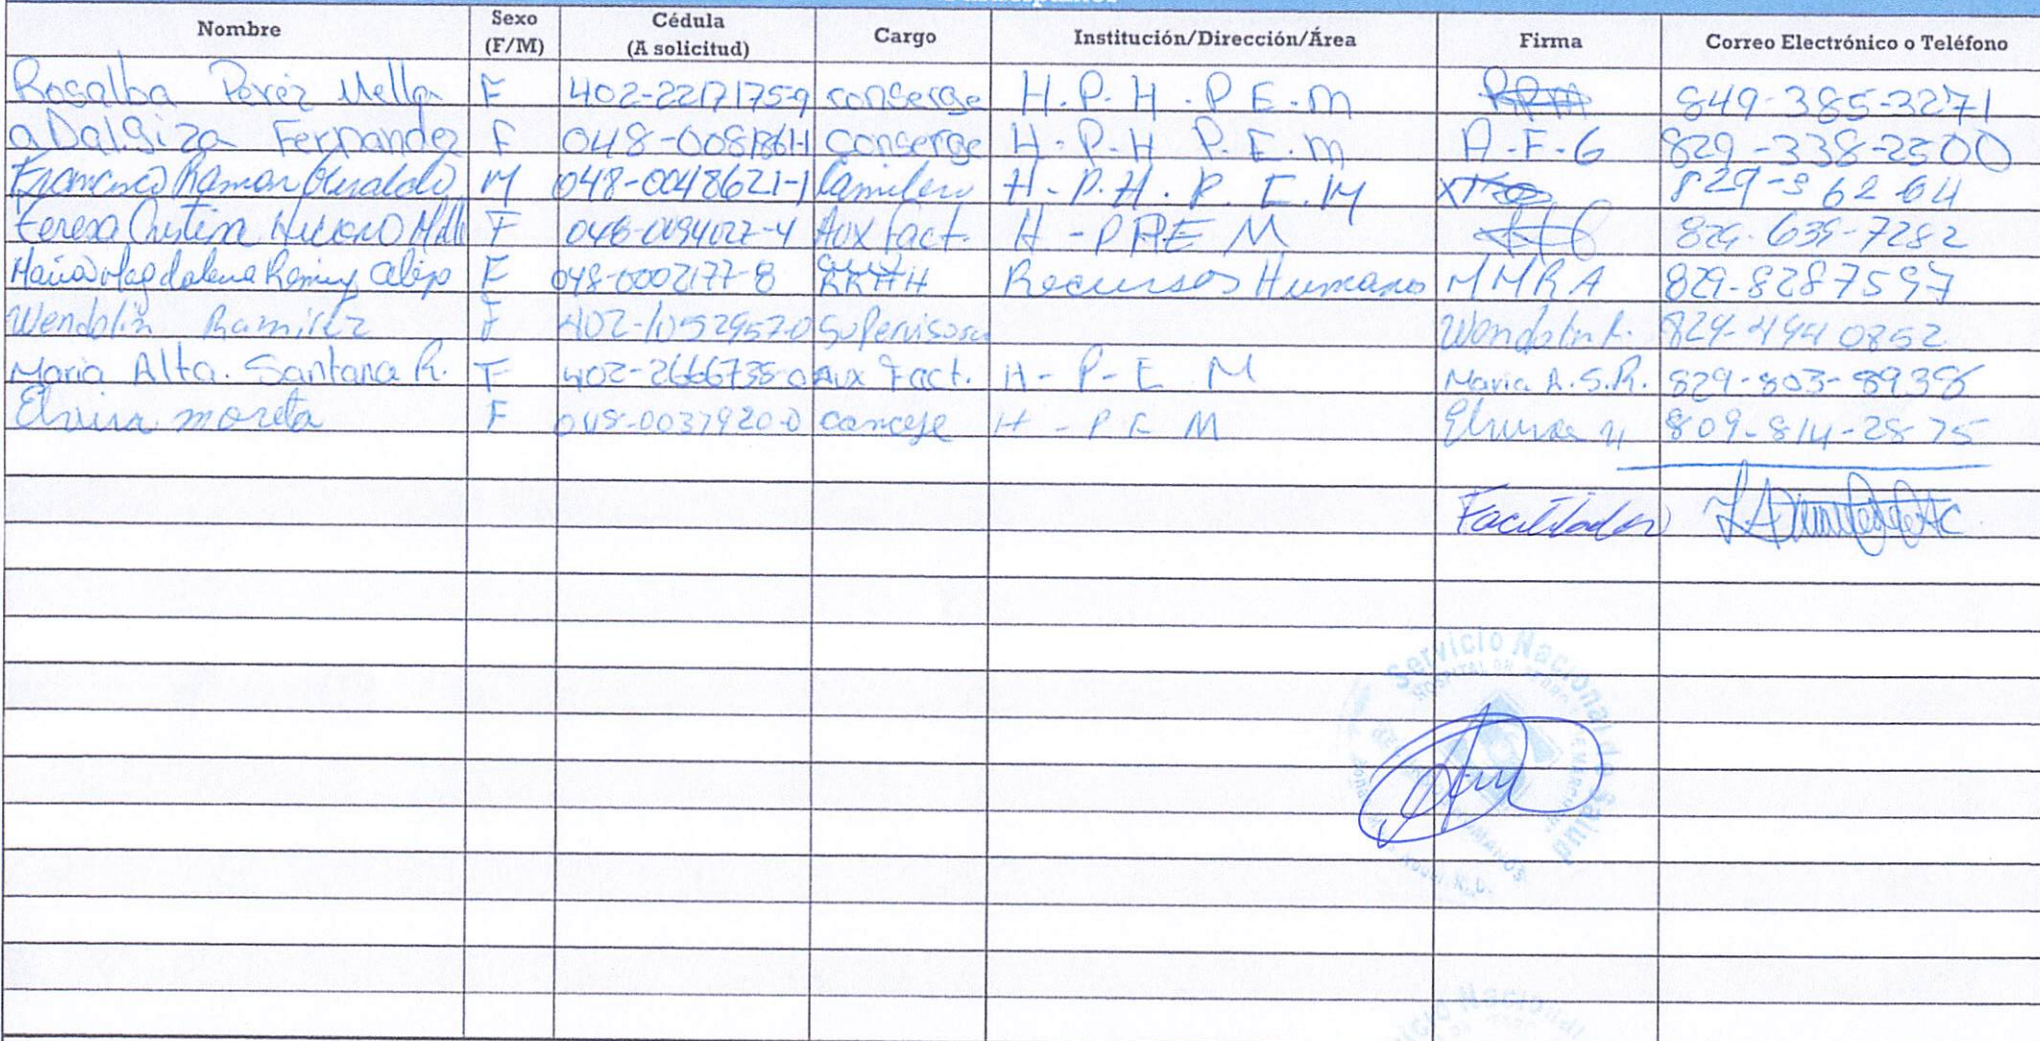 Nombre Sexo (F/M) Cédula (A solicitud) Cargo Institución/Dirección/Área Firma Correo Electrónico o Teléfono
Rosalba Peréz Mella F 402-2217175-9 conserge H.P.H.P.E.m 849-385-3271
aDalgiza Fernandez F 048-0081861-1 conserge H-P-H P.E.m A-F-G 829-338-2500
Francisco Ramon M 048-0048621-1 Camilero H-P.H.P.E.M
Teresa Cristina F Aux fact. H-PHEM 829-639-7282
Maria Magdalena F 048-0002177-8 RRHH Recursos Humanos MMRA 829-8287597
Wendolin Ramirez F 402-1052957-0 Supervisora Wendolin R. 829-494 0852
Maria Alta. Santana R. F 402-2666735-0 Aux Fact. H-P-E M Maria A.S.R.
Elvira moreta F 048-0037920-0 H-PEM 809-814-2875
Facilitador
Servicio Nacional de Salud